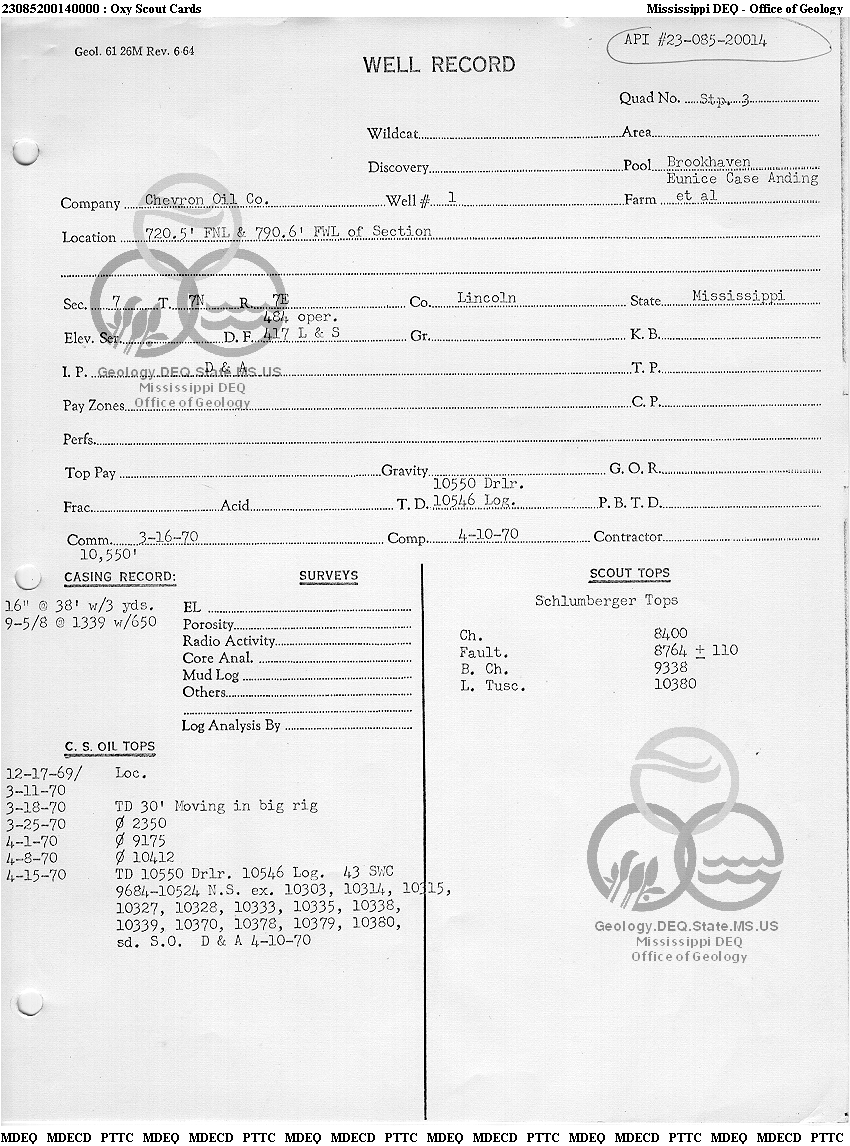 23085200140000 : Oxy Scout Cards Mississippi DEQ - Office of Geology
Geol. 61 26M Rev. 6-64
API #23-085-20014
WELL RECORD
Quad No. Stp. 3
Wildcat Area
Discovery Pool Brookhaven
Eunice Case Anding
Company Chevron Oil Co. Well # 1 Farm et al
Location 720.5' FNL & 790.6' FWL of Section
Sec. 7 T. 7N R. 7E Co. Lincoln State Mississippi
484 oper.
Elev. Ser. D. F. 417 L & S Gr. K. B.
I. P. D & A T. P.
Geology.DEQ.State.MS.US
Mississippi DEQ
Office of Geology
Pay Zones C. P.
Perfs.
Top Pay Gravity G. O. R.
10550 Drlr.
Frac. Acid T. D. 10546 Log. P. B. T. D.
Comm. 3-16-70 Comp. 4-10-70 Contractor
10,550'
CASING RECORD: SURVEYS SCOUT TOPS
16" @ 38' w/3 yds.
9-5/8 @ 1339 w/650
EL
Porosity
Radio Activity
Core Anal.
Mud Log
Others
Log Analysis By
Schlumberger Tops
Ch. 8400
Fault. 8764 ± 110
B. Ch. 9338
L. Tusc. 10380
C. S. OIL TOPS
12-17-69/ Loc.
3-11-70
3-18-70 TD 30' Moving in big rig
3-25-70 Ø 2350
4-1-70 Ø 9175
4-8-70 Ø 10412
4-15-70 TD 10550 Drlr. 10546 Log. 43 SWC
9684-10524 N.S. ex. 10303, 10314, 10315,
10327, 10328, 10333, 10335, 10338,
10339, 10370, 10378, 10379, 10380,
sd. S.O. D & A 4-10-70
Geology.DEQ.State.MS.US
Mississippi DEQ
Office of Geology
MDEQ MDECD PTTC MDEQ MDECD PTTC MDEQ MDECD PTTC MDEQ MDECD PTTC MDEQ MDECD PTTC MDEQ MDECD PTTC